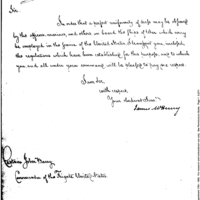 Sir
In order that a perfect uniformity of dress may be observed
by the officers, marines, and others on board the Ships of War which may
be employed in the service of the United States I transmit you inclosed,
the regulations which have been established for this purpose, and to which
you and all under your command, will be pleased to pay due respect.
I am Sir,
with respect,
Your Obedient Servt
James McHenry
Captain John Barry,
Commander of the Frigate United States